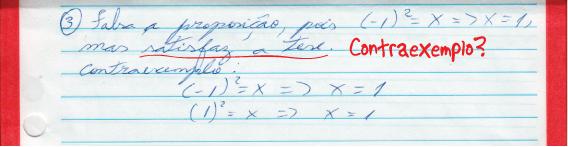 ③ Falsa a proposição, pois (-1)² = x => x = 1,
mas satisfaz a tese. Contraexemplo?
contraexemplo:
(-1)² = x => x = 1
(1)² = x => x = 1